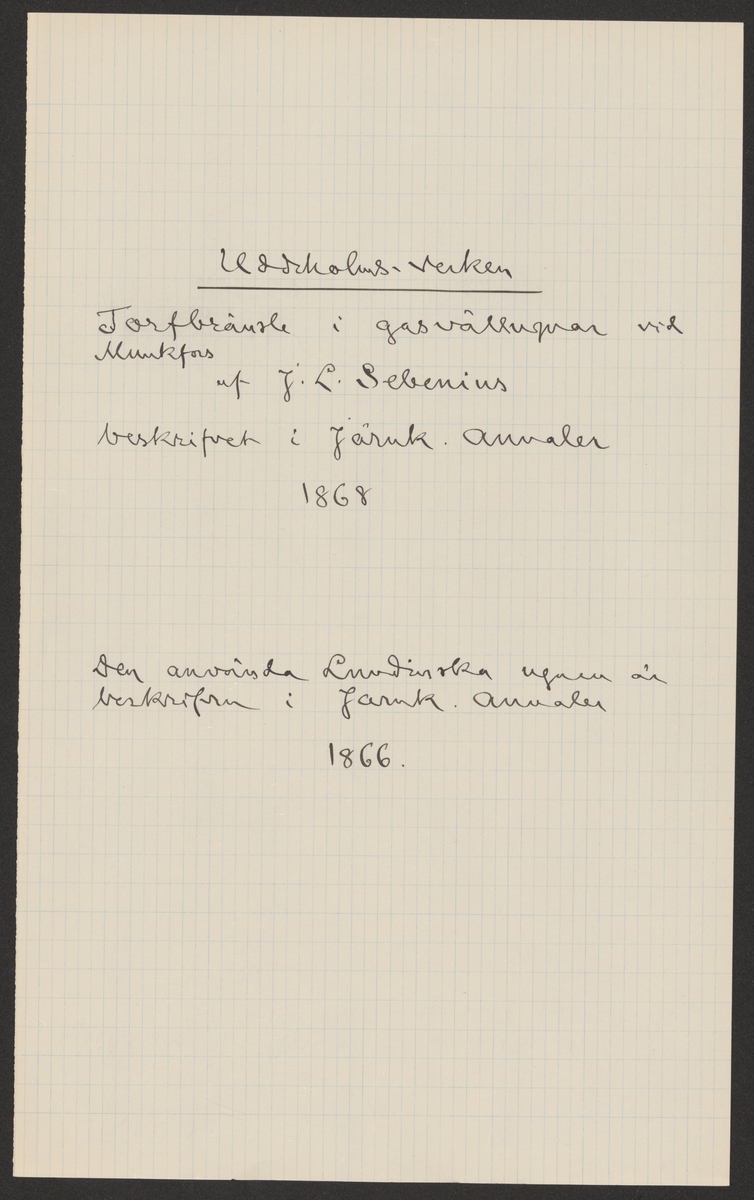 Uddeholms-verken
Torfbränsle i gasvällugnar vid
Munkfors
af J. L. Sebenius
beskrifvet i Järnk. Annaler
1868
Den använda Lundinska ugnen är
beskrifven i Jarnk. Annaler
1866.